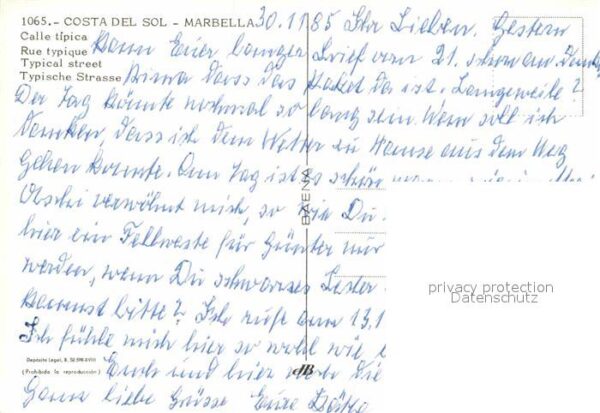 1065.- COSTA DEL SOL - MARBELLA 30.11.85 Ihr Lieben. Gestern
Calle típica
Rue typique kam Euer langer Brief vom 21. schon an. Danke
Typical street
Typische Strasse Prima dass das Paket da ist. Langeweile?
Der Tag könnte nochmal so lang sein. Wem soll ich
danken, dass ich dem Wetter zu Hause aus dem Weg
gehen konnte. Am Tag ist es schön
verwöhnt mich, so wie Du.
hier ein Fellweste für Günter nur
werden, wenn Du schwarzes Leder
kannst bitte? Ich rufe am 13.1
Ich fühle mich hier so wohl wie
Depósito Legal, B. 52.598-XVIII
(Prohibida la reproducción) Euch und hier
Ganz liebe Grüsse Eure
BAENA
privacy protection
Datenschutz